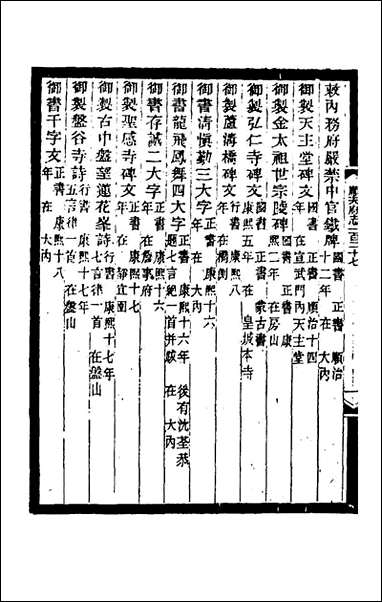 順天府志一百二十七
敕內務府嚴禁中官鐵牌 國書 正書 順治十二年 在 大內
御製天主堂碑文 國書 正書 順治十四年 在宣武門內天主堂
御製金太祖世宗陵碑文 國書 正書 康熙 年 在房山
御製弘仁寺碑文 國書 正書 蒙古書 康熙五年 在 皇城本寺
御製蘆溝橋碑文 行書 康熙八年 在橋側
御書清慎勤三大字 正書 康熙十六年 在 大內
御書龍飛鳳舞四大字 正書 康熙十六年 後有沈荃恭題七言絕一首并跋 在 大內
御書存誠二大字 正書 康熙十六年 在詹事府
御製聖感寺碑文 正書 康熙十七年 在 靜宜園
御製古中盤望蓮花峯詩 行書 康熙十七年 七言律一首 在盤山
御製盤谷寺詩 行書 康熙十七年 五言律一首 在盤山
御書千字文 正書 康熙十八年 在 大內